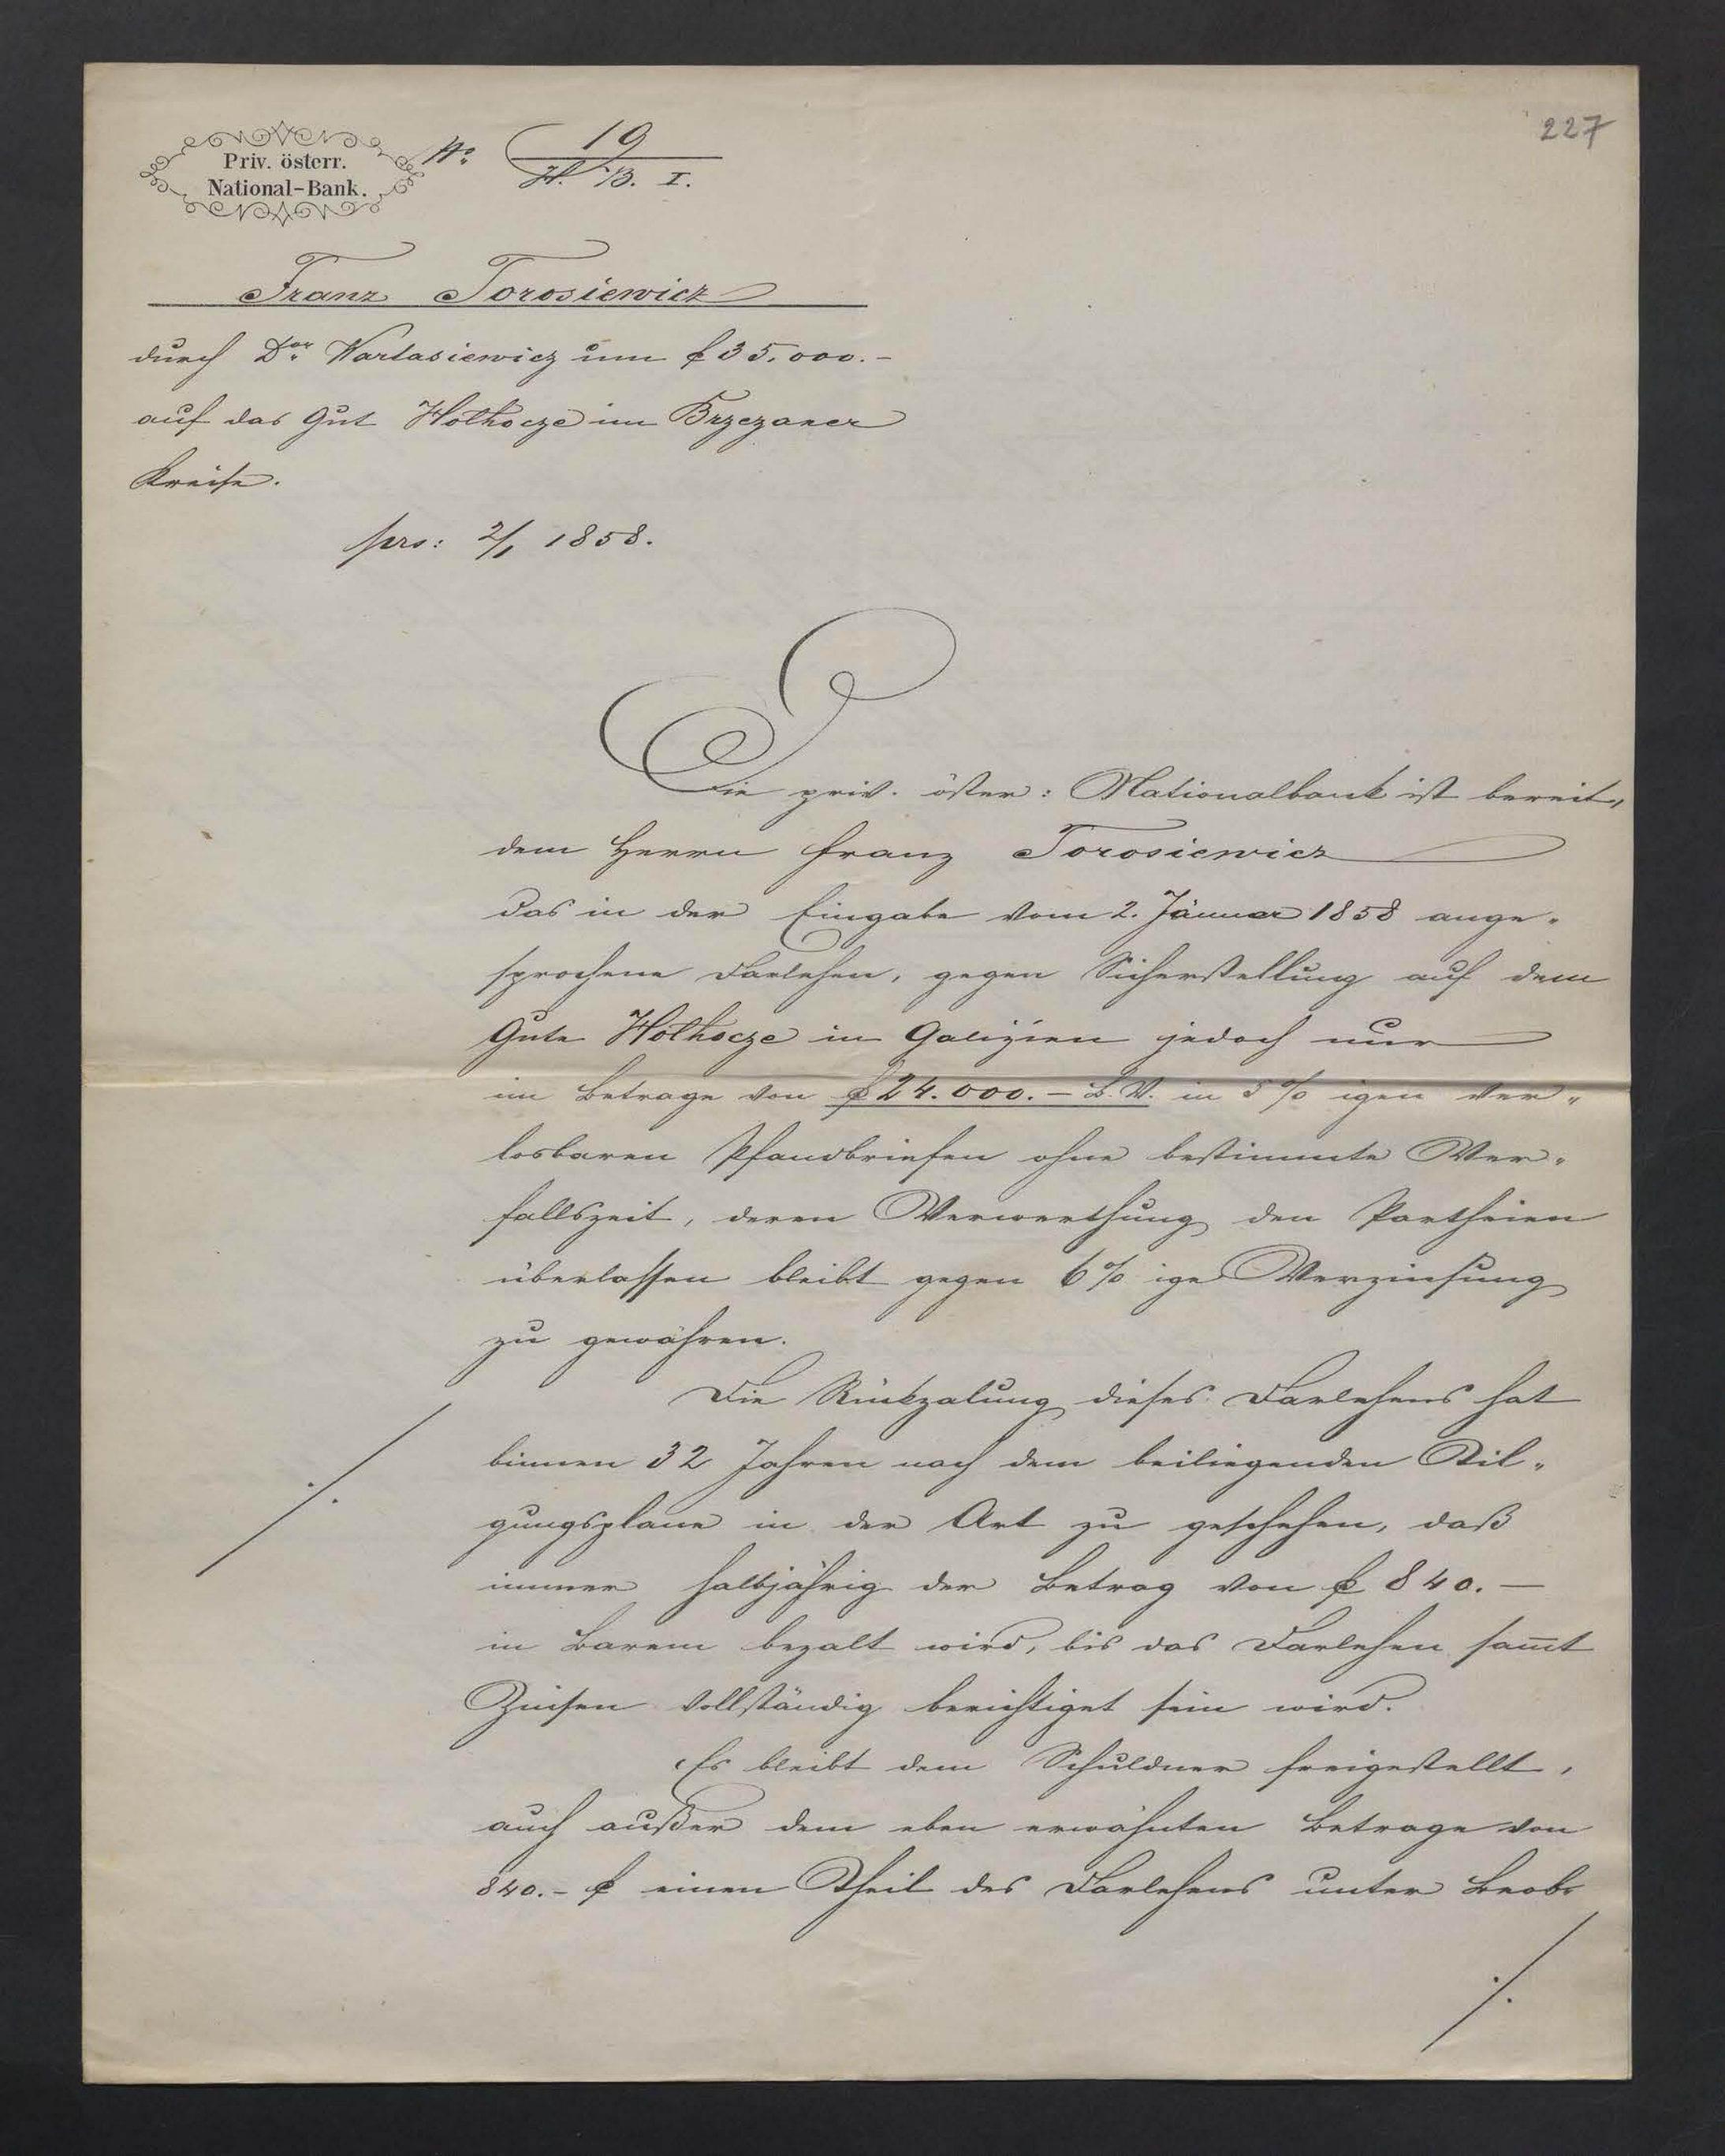 227
Priv. österr.
National-Bank.
No 19
H. B. I.
Franz Torosiewicz
durch Dor Wartasiewicz um f 35.000.-
auf das Gut Hołhocze im Brzezaner
Kreise.
prs: 2/1 1858.
Die priv. österr: Nationalbank ist bereit,
dem Herrn Franz Torosiewicz
das in der Eingabe vom 2. Jänner 1858 ange-
sprochene Darlehen, gegen Sicherstellung auf dem
Gute Hołhocze in Galizien jedoch nur
im Betrage von f 24.000.- B.V. in 5 % igen ver-
losbaren Pfandbriefen ohne bestimmte Ver-
fallszeit, deren Verwerthung den Partheien
überlassen bleibt gegen 6 % ige Verzinsung
zu gewähren.
Die Rückzalung dieses Darlehens hat
./. binnen 32 Jahren nach dem beiliegenden Til-
gungsplane in der Art zu geschehen, daß
immer halbjährig der Betrag von f 840.-
in Barem bezalt wird, bis das Darlehen sam̅t
Zinsen vollständig berichtiget sein wird.
Es bleibt dem Schuldner freigestellt,
auch außer dem eben erwähnten Betrage von
840.- f einen Theil des Darlehens unter Beob-
./.